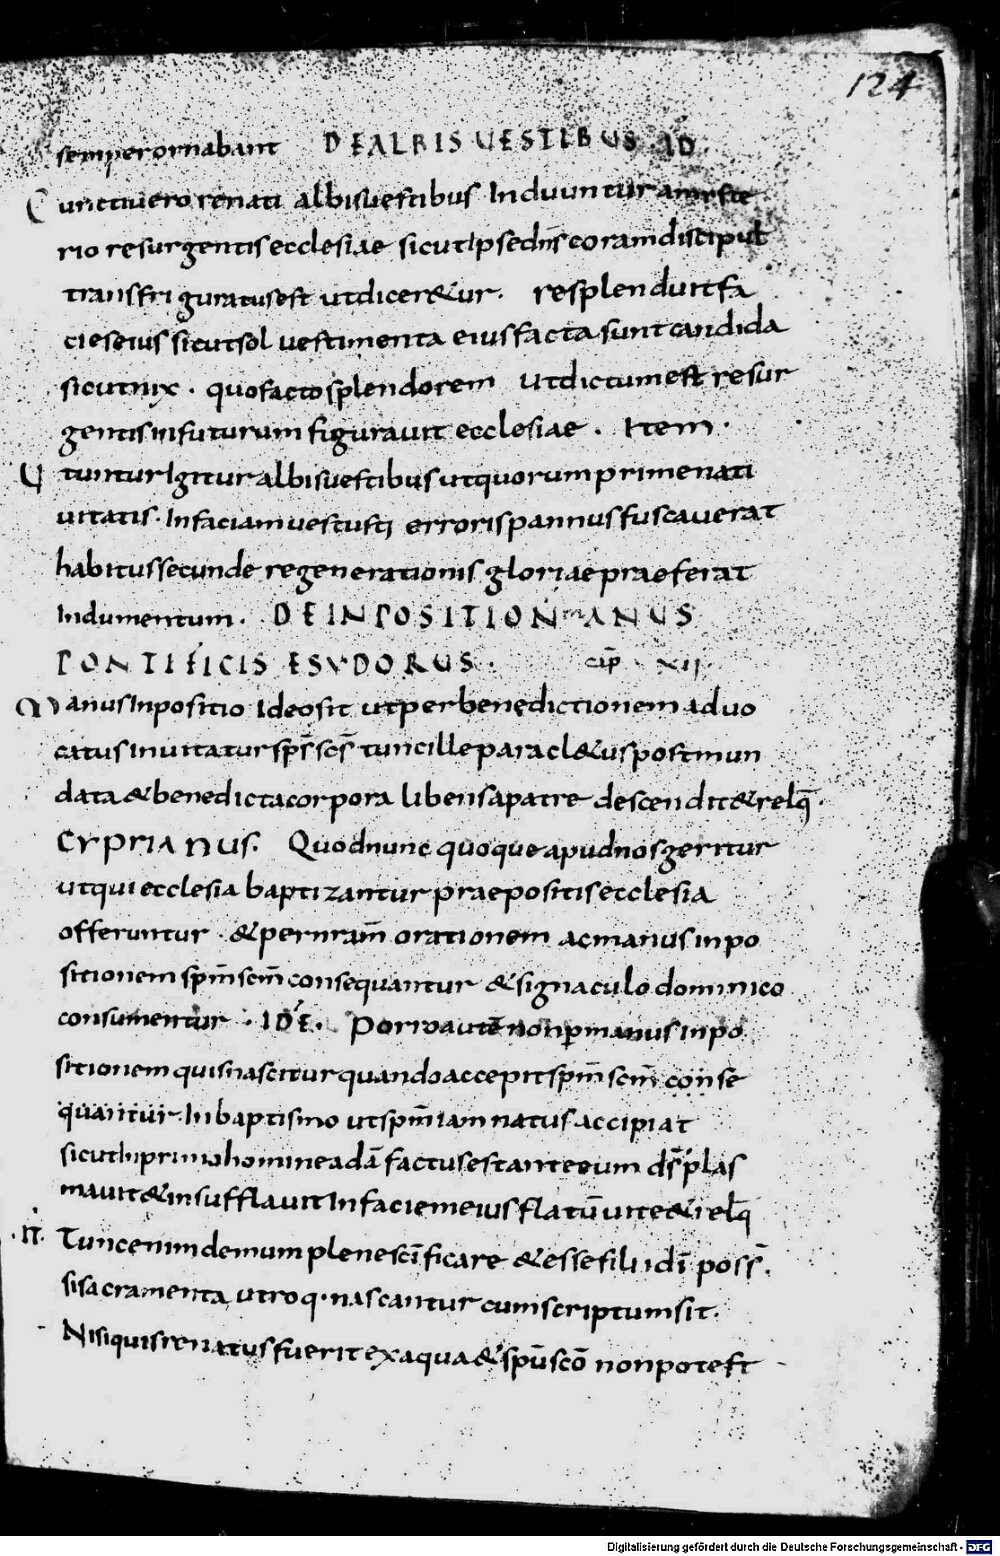 124
semper ornabant DE ALBIS UESTIBUS · ID
Cuncti uero renati albis uestibus Induuntur a miste
rio resurgentis ecclesiae sicut Ipse dn̄s coram discipul̄
transfiguratus est ut dicer&ur · resplenduit fa
cies eius sicut sol uestimenta eius facta sunt candida
sicut nix · quo facto splendorem ut dictum est resur
gentis in futurum figurauit ecclesiae · Item ·
Utuntur Igitur albis uestibus ut quorum prime nati
uitatis · Infaciam uestusti erroris pannus fuscauerat
habitus secunde regenerationis gloriae praeferat
Indumentum · DE INPOSITION MANUS
PONTIFICIS ESVDORUS · cap̄ · XII ·
Manus Inpositio Ideo sit ut per benedictionem aduo
catus Inuitatur sp̄s sc̄s tunc ille paracl&us post mun
data & benedicta corpora libens a patre descendit & relq̄ ·
CYPRIANUS · Quod nunc quoque apud nos geritur
ut qui ecclesia baptizantur praepositis ecclesia
offeruntur · & per nram̄ orationem ac manus inpo
sitionem spm̄ scm̄ consequantur & signaculo dominico
consumentur · IDĒ · Porro autē non p̄ manus inpo
sitionem quis nascitur quando accepit spm̄ scm̄ conse
quantur · In baptismo ut spm̄ iam natus accipiat
sicut In primo homine adā factus est ante eum ds̄ plas
mauit & insufflauit In faciem eius flatū uite & relq̄
· IT̄ · Tunc enim demum plene sc̄ificare & esse filii dī poss̄ ·
si sacramenta utroq · nascantur cum scriptum sit ·
Nisi quis renatus fuerit ex aqua & spū scō non potest
Digitalisierung gefördert durch die Deutsche Forschungsgemeinschaft - DFG